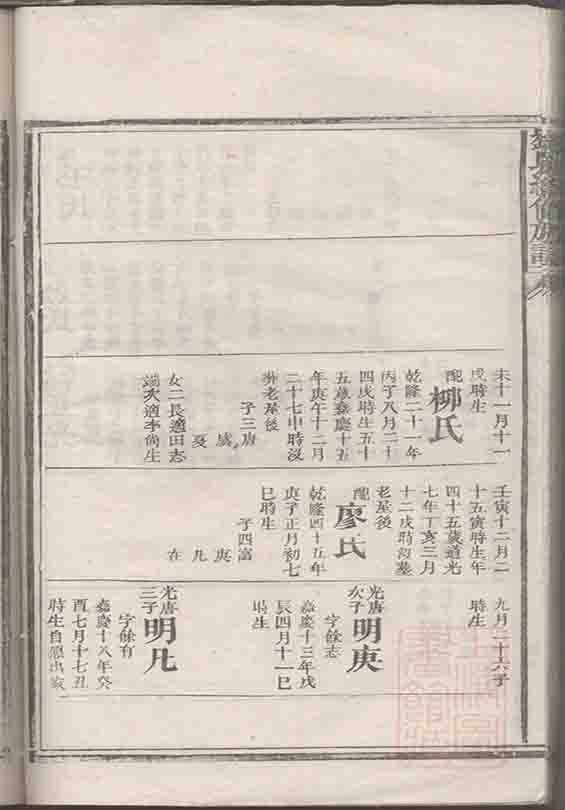 未十一月十一
戌時生
配柳氏
乾隆二十一年
丙子八月二十
四戌時生五十
五歲嘉慶十五
年庚午十二月
二十七申時沒
葬老屋後
子三唐
虞
夏
女二長適田志
次適李尚生
壬寅十二月二
十五寅時生年
四十五歲道光
七年丁亥三月
十二戌時沒墓
老屋後
配廖氏
乾隆四十五年
庚子正月初七
巳時生
子四富
庚
凡
在
九月二十六子
時生
光唐次子明庚
字餘志
嘉慶十三年戊
辰四月十一巳
時生
光唐三子明凡
字餘有
嘉慶十八年癸
酉七月十七丑
時生自愿出家